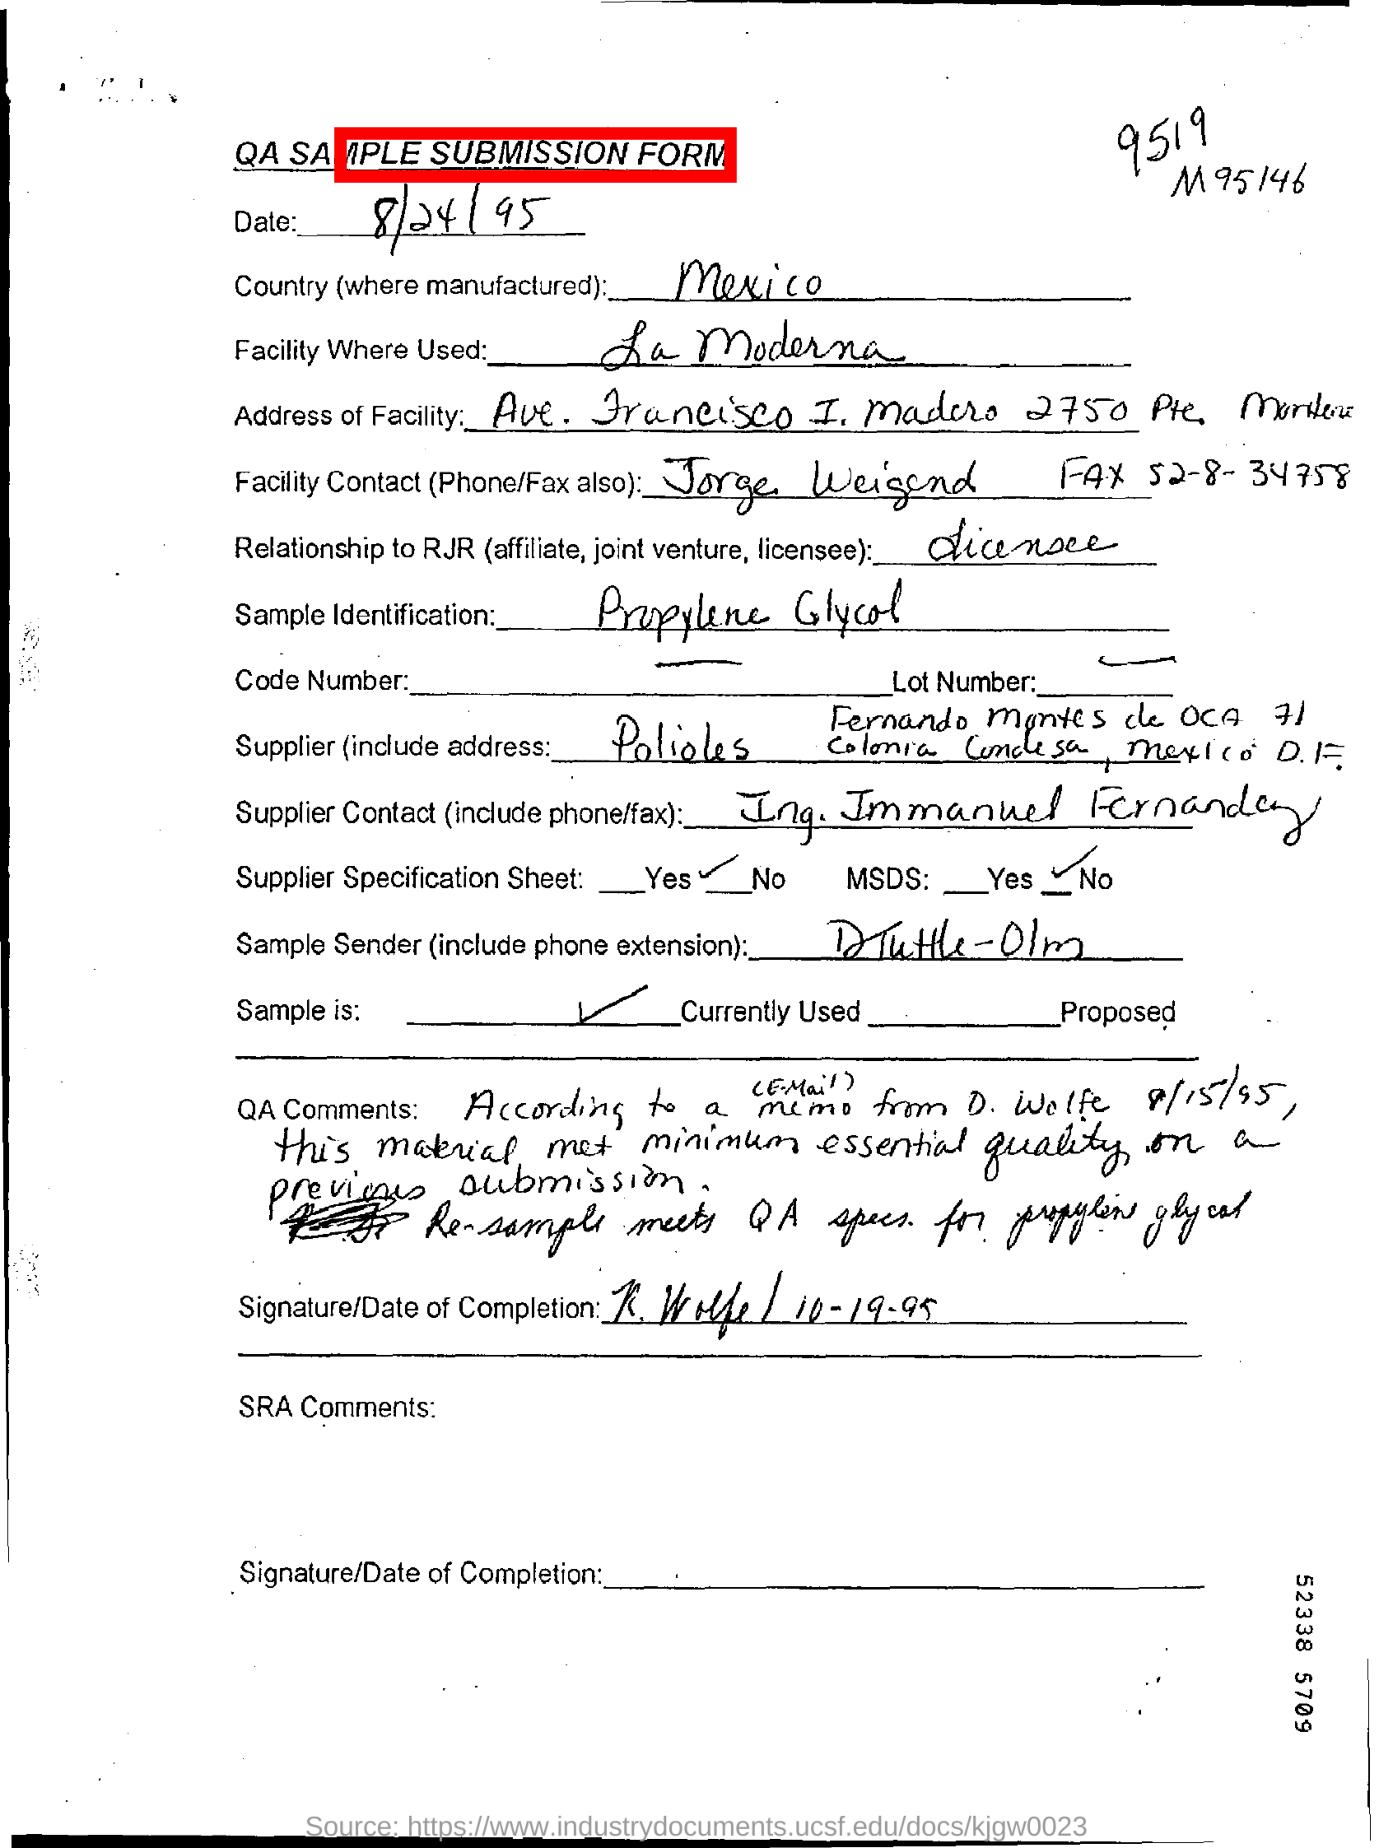 9519
M95146
QA SAMPLE SUBMISSION FORM
Date: 8/24/95
Country (where manufactured): Mexico
Facility Where Used: La Moderna
Address of Facility: Ave. Francisco I. Madero 2750 Pte.
Facility Contact (Phone/Fax also): Jorge Weigend FAX 52-8-34758
Relationship to RJR (affiliate, joint venture, licensee): Licensee
Sample Identification: Propylene Glycol
Code Number: — Lot Number: —
Fernando Montes de OCA 71
Supplier (include address: Polioles Colonia Condesa, Mexico D.F.
Supplier Contact (include phone/fax): Ing. Immanuel Fernandez
Supplier Specification Sheet: ___Yes ✓ No MSDS: ___Yes ✓ No
Sample Sender (include phone extension): DTuttle-Olm
Sample is: ✓ Currently Used ___ Proposed
(E-Mail)
QA Comments: According to a memo from D. Wolfe 8/15/95,
this material met minimum essential quality on a
previous submission.
Re-sample meets QA specs. for propylene glycol
Signature/Date of Completion: K. Wolfe / 10-19-95
SRA Comments:
Signature/Date of Completion:
52338 5709
Source: https://www.industrydocuments.ucsf.edu/docs/kjgw0023